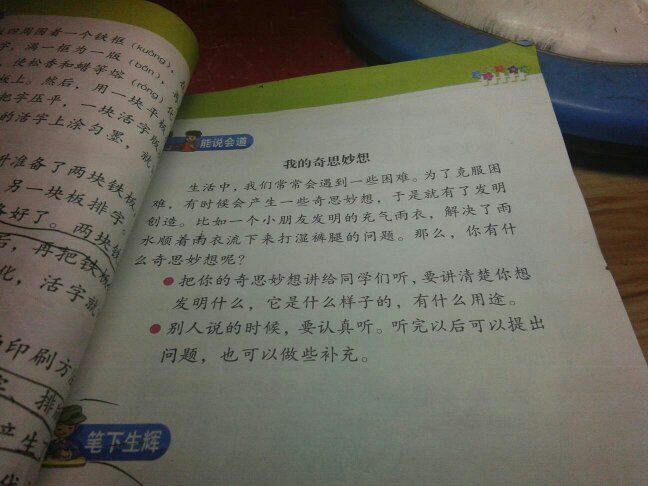 四周围着一个铁框(kuàng),
字,满一框为一版(bǎn),
使松香和蜡等熔(róng)化
板上。然后,用一块平板
把字压平,一块活字版
的活字上涂匀墨,就
准备了两块铁板,
另一块板排字。
备好了。两块铁
后,再把铁板
化,活字就
印刷方
排
产生
能说会道
我的奇思妙想
生活中,我们常常会遇到一些困难。为了克服困
难,有时候会产生一些奇思妙想,于是就有了发明
创造。比如一个小朋友发明的充气雨衣,解决了雨
水顺着雨衣流下来打湿裤腿的问题。那么,你有什
么奇思妙想呢?
●把你的奇思妙想讲给同学们听,要讲清楚你想
发明什么,它是什么样子的,有什么用途。
●别人说的时候,要认真听。听完以后可以提出
问题,也可以做些补充。
笔下生辉